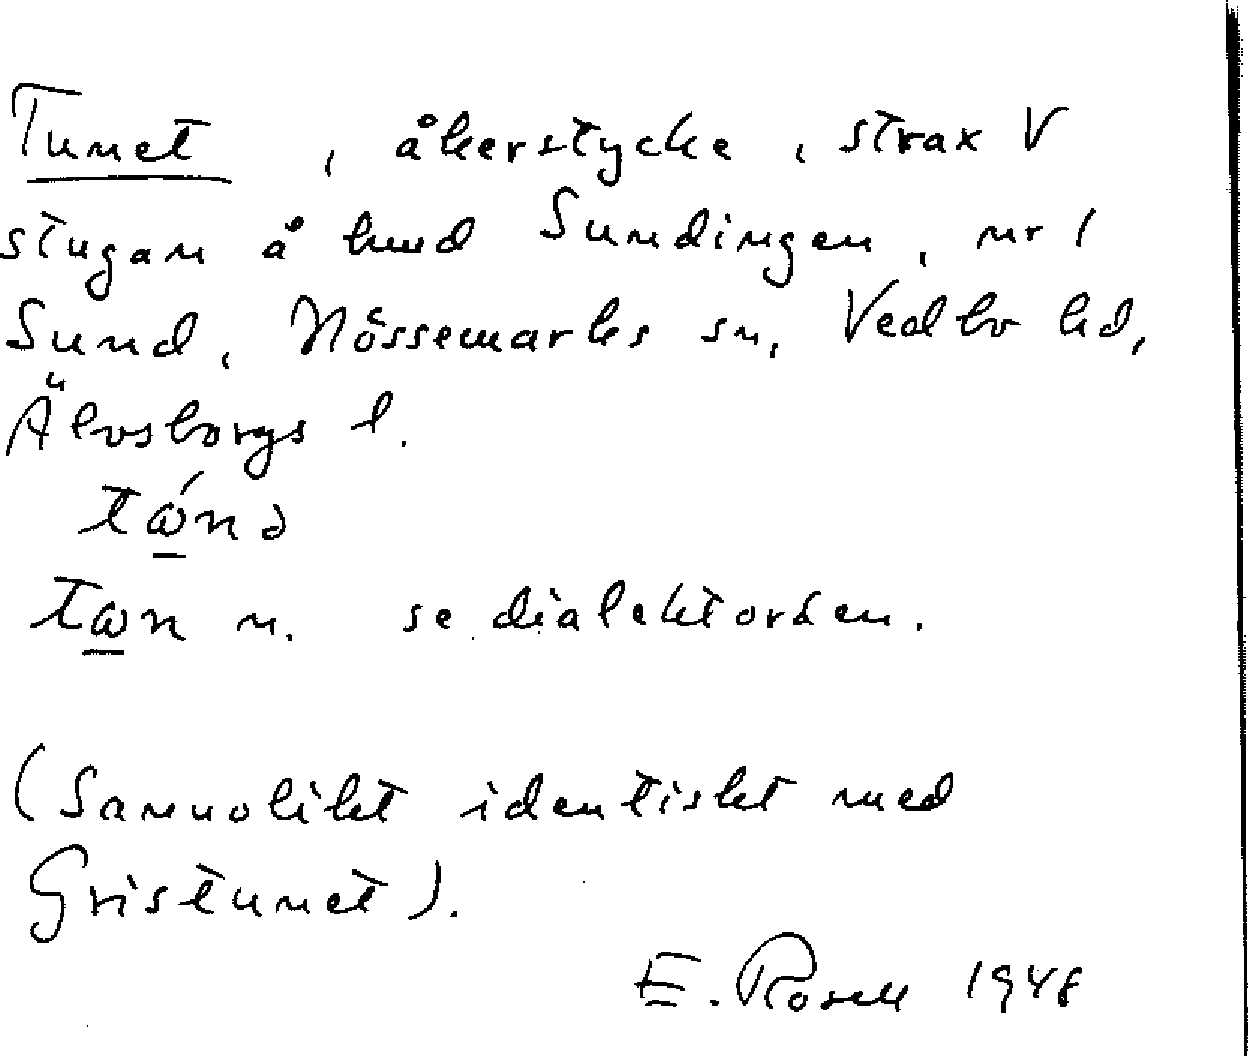 Tunet, åkerstycke, strax V
stugan å hmd Sundingen, nr 1
Sund, Nössemarks sn, Vedbo hd,
Älvsborgs l.
tώ̲nə
tω̲n n. se dialektorden.
(Sannolikt identiskt med
Gristunet).
E. Rosell 1948